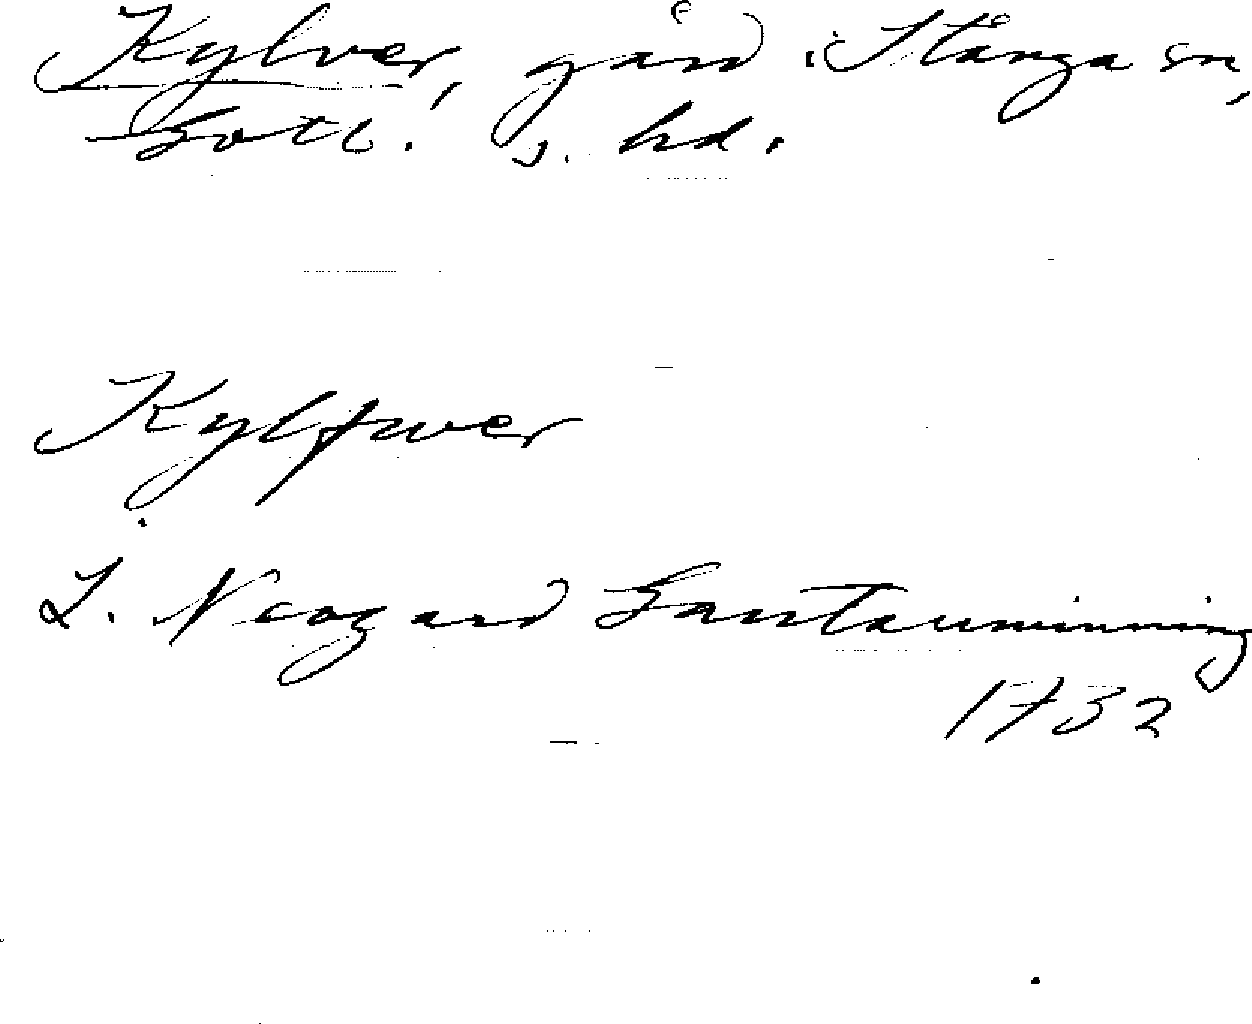 Kylver, gård i Stånga sn,
Gotl. s. hd.
Kylfwer
L. Neogard Gautauminning
1732